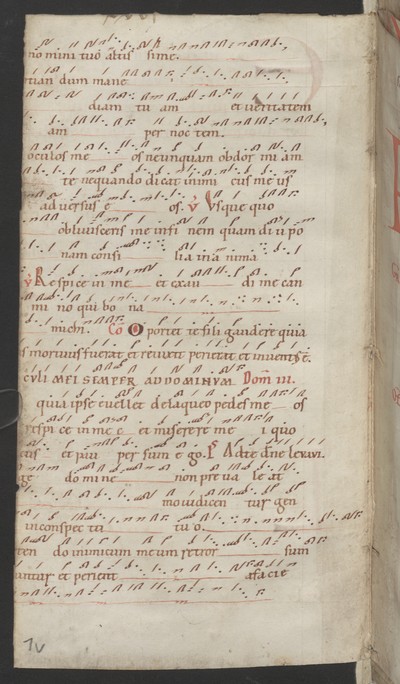 nomini tuo altis sime.
tian dum mane
diam tu am et veritatem
am per noctem.
oculos me os neunquam obdor mi am
te nequando dicat inimi cus me us
adversus e os. V Usque quo
oblivisceris me in fi nem quam di u po
nam consi lia in a nima
V Respice in me et exau di me
mi no qui bo na
michi. Cō Oportet te fili gaudere quia
mortuus fuerat et revixit perierat et inventus ē.
CULI MEI SEMPER AD DOMINUM Dom III.
quia ipse evellet de laqueo pedes me os
respi ce in me et miserere me i quo
et pau per sum e go. Ps Ad te dne levavi.
ge do mine non preva le at
mo iudicen tur gen
in conspec tu tu o.
do inimicum meum retror sum
untur et perient a facie
1v